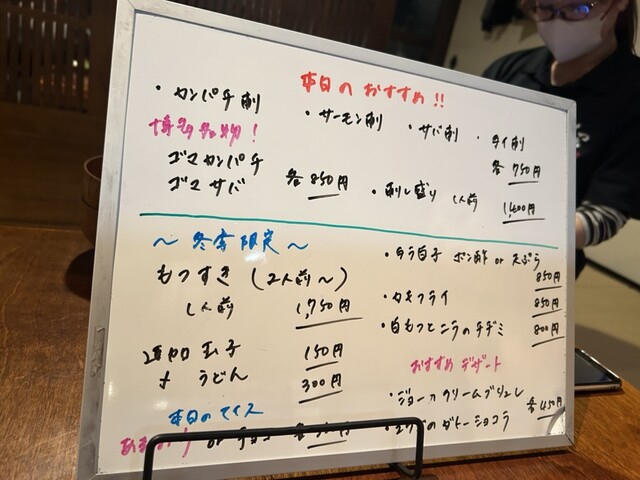 本日のおすすめ!!
・カンパチ刺 ・サーモン刺 ・サバ刺 ・タイ刺
各 750円
博多名物!
ゴマカンパチ
ゴマサバ 各850円
・刺し盛り 1人前 1,400円
～冬季限定～
もつすき(2人前～)
1人前 1,750円
追加 玉子 150円
〃 うどん 300円
本日のアイス
or チョコ 各
・タラ白子 ポン酢 or 天ぷら
850円
・カキフライ 850円
・白もつとニラのチヂミ 800円
おすすめデザート
・クリームブリュレ
のガトーショコラ 各450円